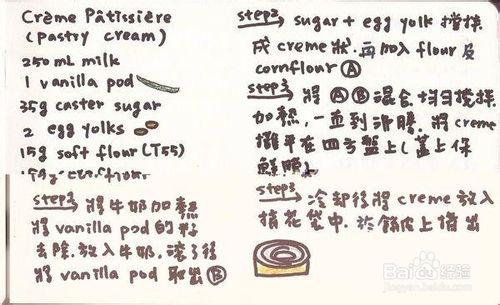 Crème Pâtissière
(pastry cream)
250 mL milk
1 vanilla pod
35g caster sugar
2 egg yolks
15g soft flour (T55)
step1 將牛奶加熱
將 vanilla pod 的籽
去除. 放入牛奶. 滾了後
將 vanilla pod 取出 Ⓑ
step2 sugar + egg yolk 攪拌
成 creme 狀. 再加入 flour 及
cornflour Ⓐ
step3 將 Ⓐ Ⓑ 混合 均勻攪拌
加熱, 一直到沸騰. 將 creme
攤平在四方盤上(蓋上保
鮮膜)
step3 冷卻後將 creme 放入
擠花袋中. 於餡皮上擠出
Baidu 经验